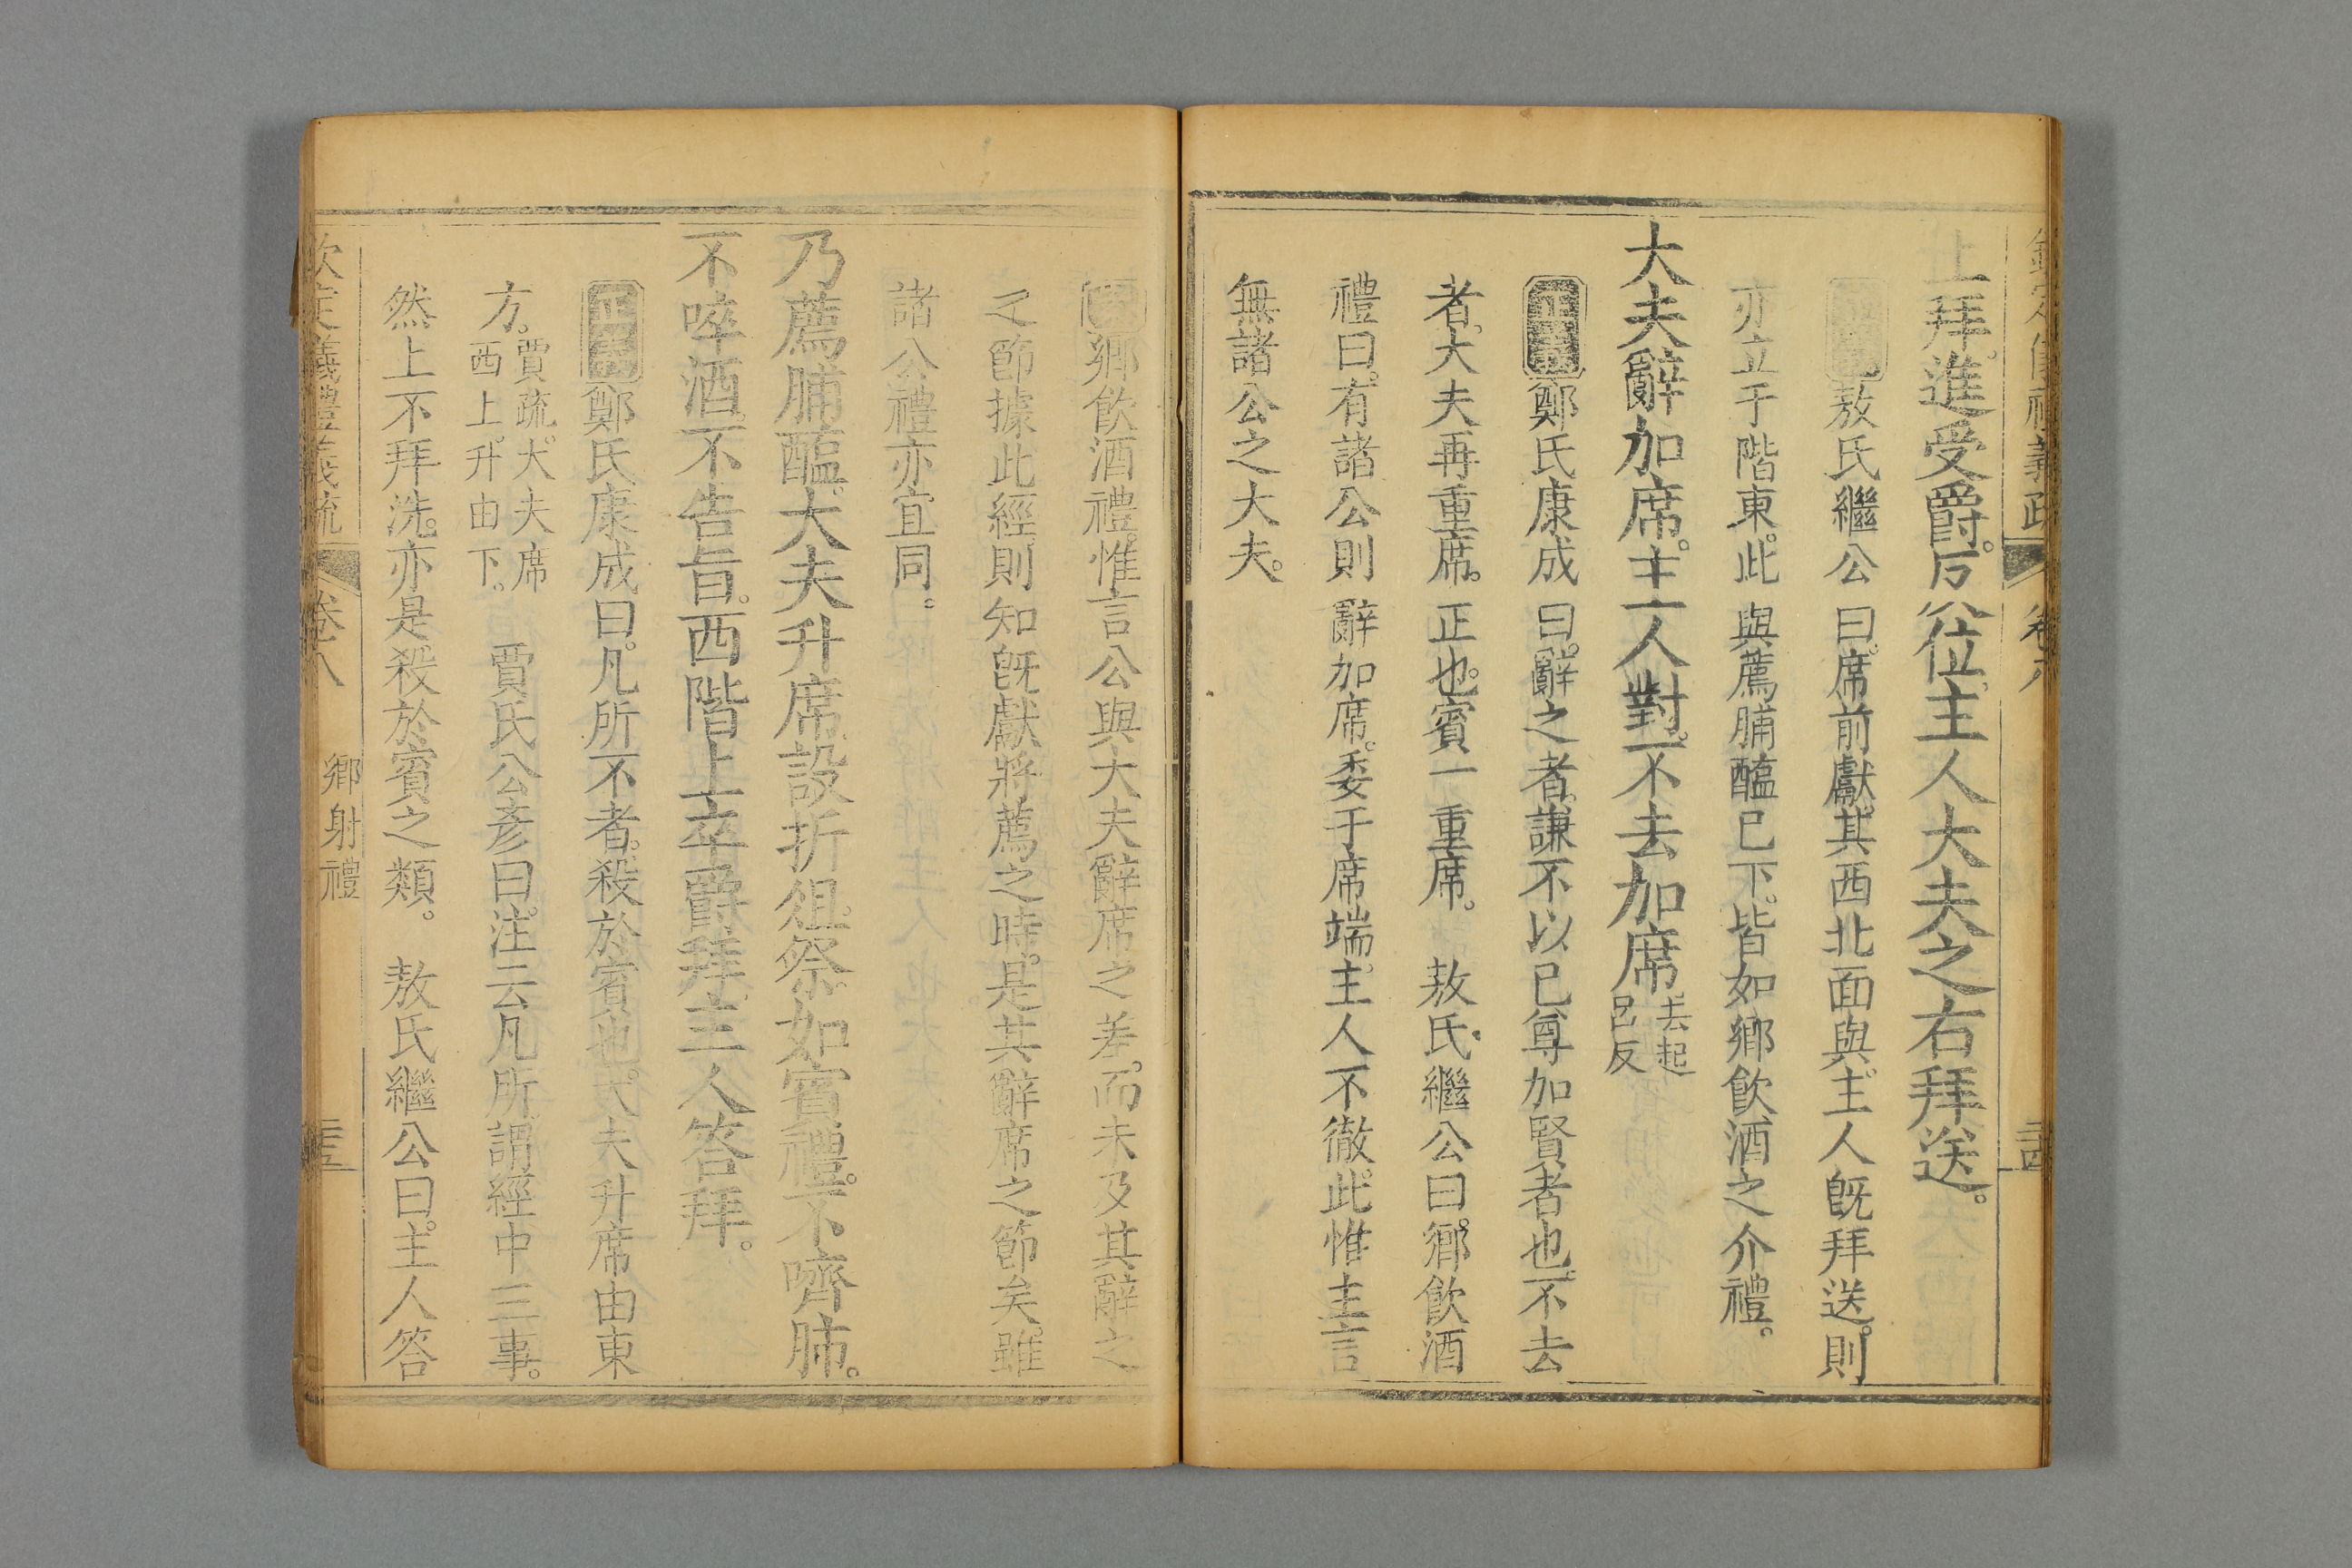 欽定儀禮義疏 卷八 二十四
上拜進受爵。反位。主人大夫之右拜送。
正義敖氏繼公曰。席前獻。其西北面與。主人旣拜送。則
亦立于階東。此與薦脯醢已下。皆如鄉飮酒之介禮。
大夫辭加席。主人對。不去加席。去起呂反
正義鄭氏康成曰。辭之者。謙不以已尊加賢者也。不去
者。大夫再重席。正也。賓一重席。 敖氏繼公曰。鄉飮酒
禮曰。有諸公則辭加席。委于席端。主人不徹。此惟主言
無諸公之大夫。
鄉飮酒禮。惟言公與大夫辭席之差。而未及其辭之
之節。據此經則知旣獻將薦之時。是其辭席之節矣。雖
諸公禮亦宜同。
乃薦脯醢。大夫升席。設折俎。祭如賓禮。不嚌肺。
不啐酒。不告旨。西階上卒爵拜。主人答拜。
正義鄭氏康成曰。凡所不者。殺於賓也。大夫升席由東
方。賈疏。大夫席西上。升由下。 賈氏公彥曰。注云凡所。謂經中三事。
然上不拜洗。亦是殺於賓之類。 敖氏繼公曰。主人答
欽定儀禮義疏 卷八 鄉射禮 二十五